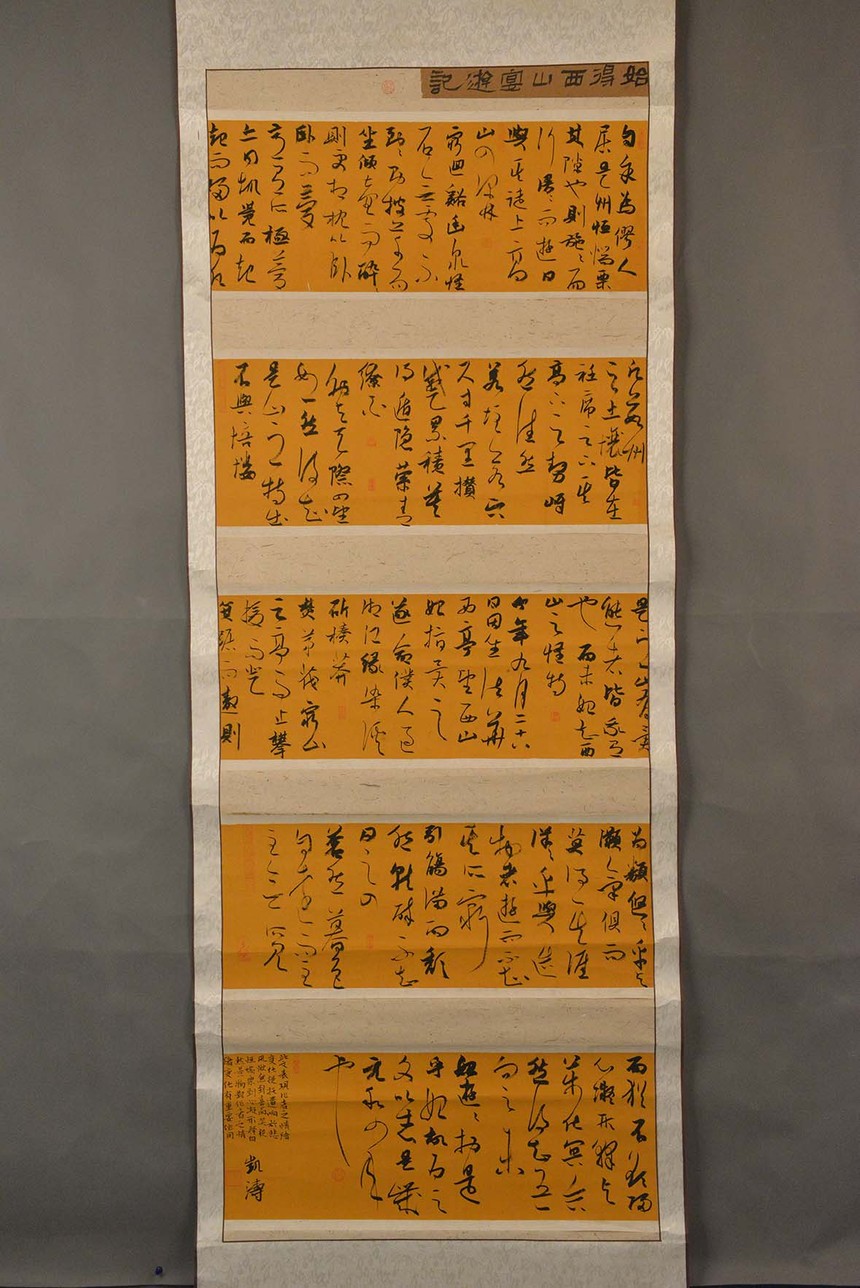 始得西山宴遊記
自余為僇人
居是州恒惴栗
其隙也則施〻而
行漫〻而遊日
與其徒上高
山入深林
窮迴谿幽泉怪
石無遠不
到〻則披草而
坐傾壺而醉〻
則更相枕以臥
臥而夢
意有所極夢
亦同趣覺而起
起而歸以為凡
數州
之土壤皆在
衽席之下其
高下之勢岈
然洼然
若垤若穴
尺寸千里攢
蹙累積莫
得遁隱縈青
繚白
外與天際四望
如一然後知
是山之特出
不與培塿
是州之山有異
態者皆我有
也而未始知西
山之怪特
今年九月二十八
日因坐法華
西亭望西山
始指異之
遂命僕人過
湘江緣染溪
斫榛莽
焚茅茷窮山
之高而止攀
援而登
箕踞而遨則
為類悠〻乎與
灝氣俱而
莫得其涯
洋〻乎與造
物者遊而不知
其所窮
引觴滿酌頹
然就醉不知
日之入
蒼然暮色
自遠而至
至無所見
而猶不欲歸
心凝形釋與
萬化冥合
然後知吾
向之未
始遊〻於是
乎始故為之
文以志是歲
元和四年
也
凱濤